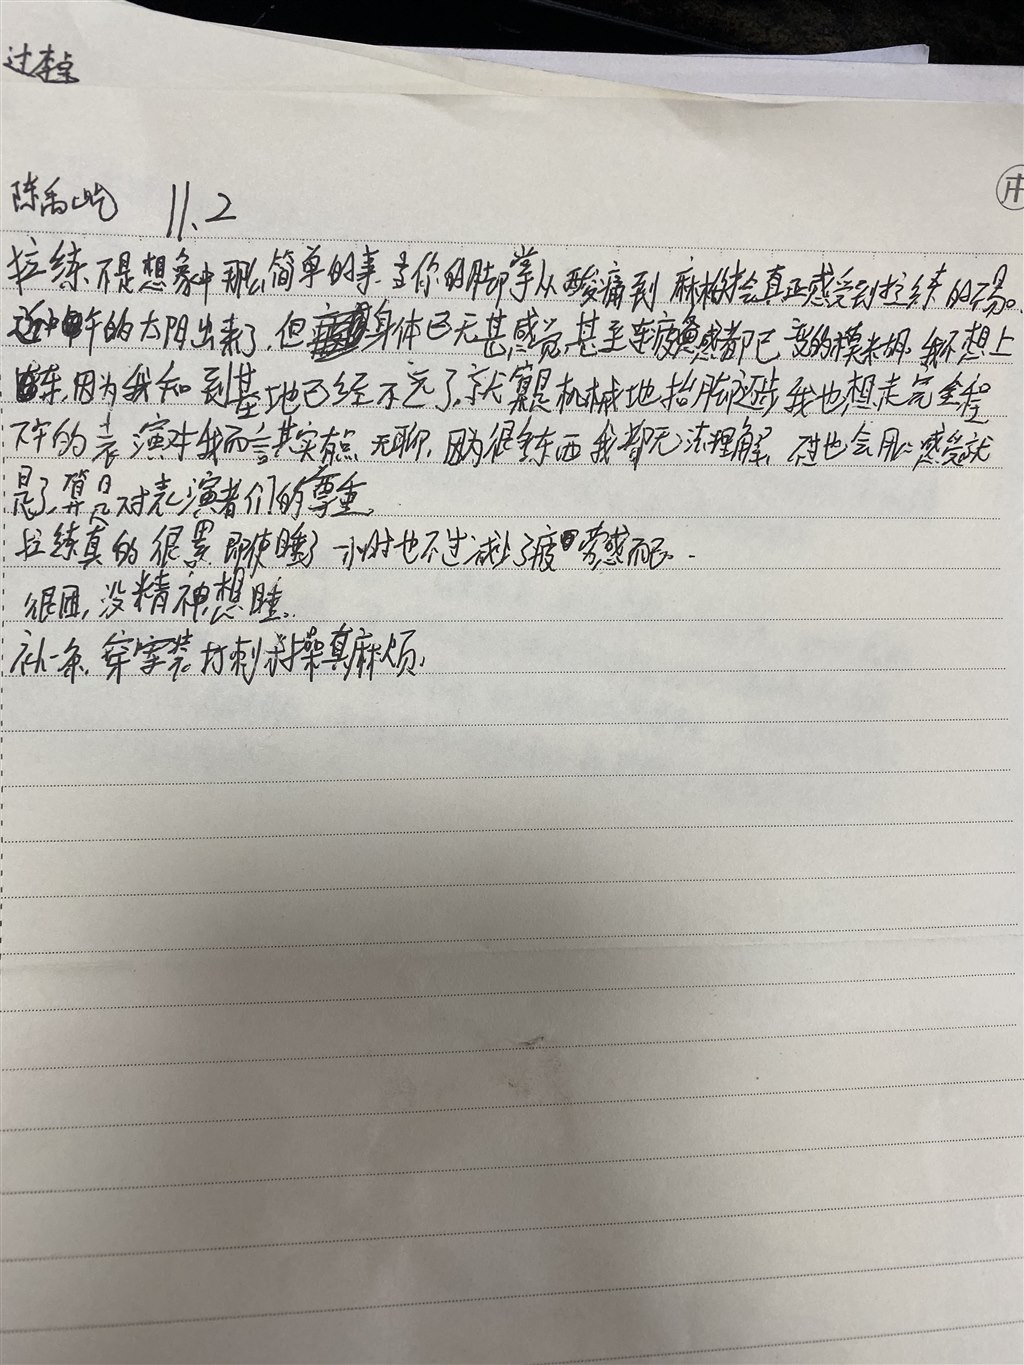 过李卓
陈禹屹 11.2
拉练不是想象中那么简单的事.当你的脚掌从酸痛到麻木时才会真正感受到拉练的不易。
近中午的太阳出来了,但身体已无甚感觉,甚至连疲惫感都已变的模糊.我不想上
车,因为我知到基地已经不远了,就算是机械地抬脚迈步我也想走完全程
下午的表演对我而言其实有点无聊,因为很多东西我都无法理解,不过也会用心感受就
是了,算是对表演者们的尊重,
拉练真的很累,即使睡了一小时也不过减少了疲劳感而已..
很困,没精神,想睡.
补一条,穿军装打刺杀操真麻烦,